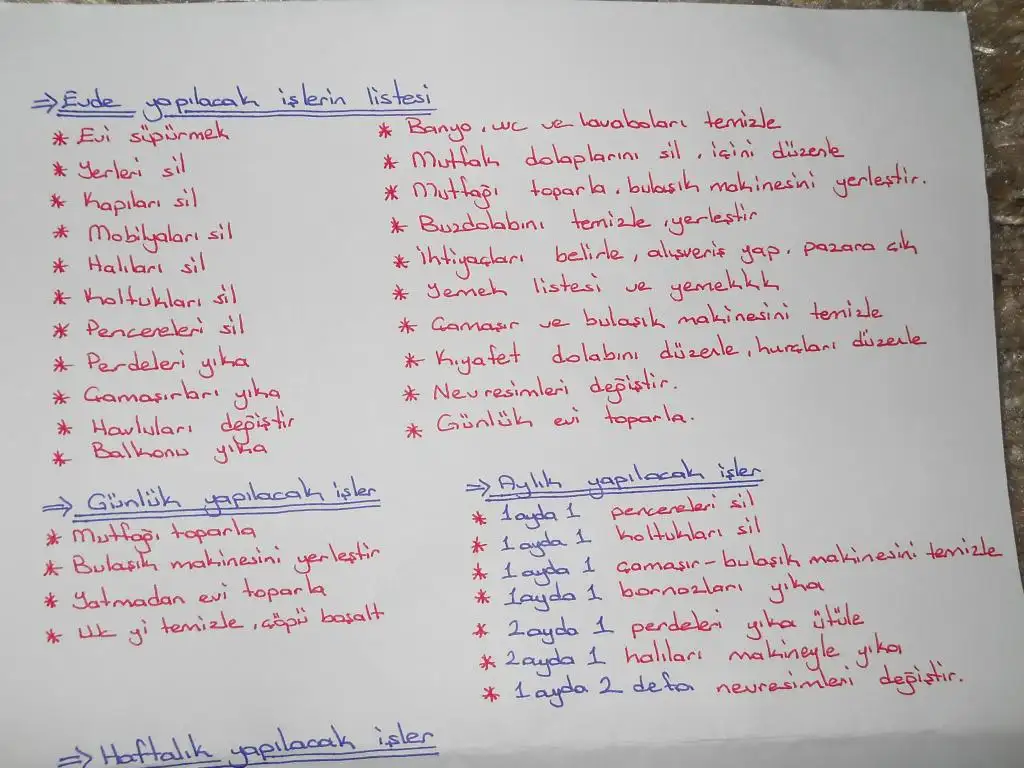 ⇒ Evde yapılacak işlerin listesi
* Evi süpürmek
* Yerleri sil
* Kapıları sil
* Mobilyaları sil
* Halıları sil
* Koltukları sil
* Pencereleri sil
* Perdeleri yıka
* Çamaşırları yıka
* Havluları değiştir
* Balkonu yıka
* Banyo, wc ve lavaboları temizle
* Mutfak dolaplarını sil, içini düzenle
* Mutfağı toparla, bulaşık makinesini yerleştir.
* Buzdolabını temizle, yerleştir
* İhtiyaçları belirle, alışveriş yap, pazara çık
* Yemek listesi ve yemekkk
* Çamaşır ve bulaşık makinesini temizle
* Kıyafet dolabını düzenle, hurçları düzenle
* Nevresimleri değiştir.
* Günlük evi toparla.
⇒ Günlük yapılacak işler
* Mutfağı toparla
* Bulaşık makinesini yerleştir
* Yatmadan evi toparla
* Wc yi temizle, çöpü boşalt
⇒ Aylık yapılacak işler
* 1 ayda 1 pencereleri sil
* 1 ayda 1 koltukları sil
* 1 ayda 1 çamaşır-bulaşık makinesini temizle
* 1 ayda 1 bornozları yıka
* 2 ayda 1 perdeleri yıka ütüle
* 2 ayda 1 halıları makineyle yıka
* 1 ayda 2 defa nevresimleri değiştir.
⇒ Haftalık yapılacak işler